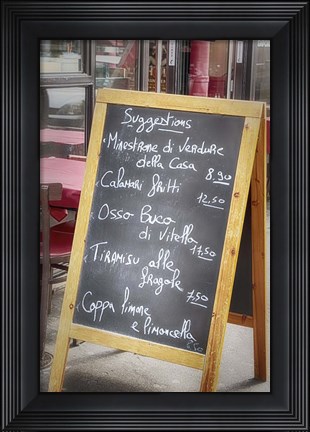 Suggestions
Minestrone di verdure
della Casa
8,90
Calamari fritti
12,50
Osso Buco
di vitella
17,50
Tiramisu alle
fragole
7,50
Coppa limone
e limoncella